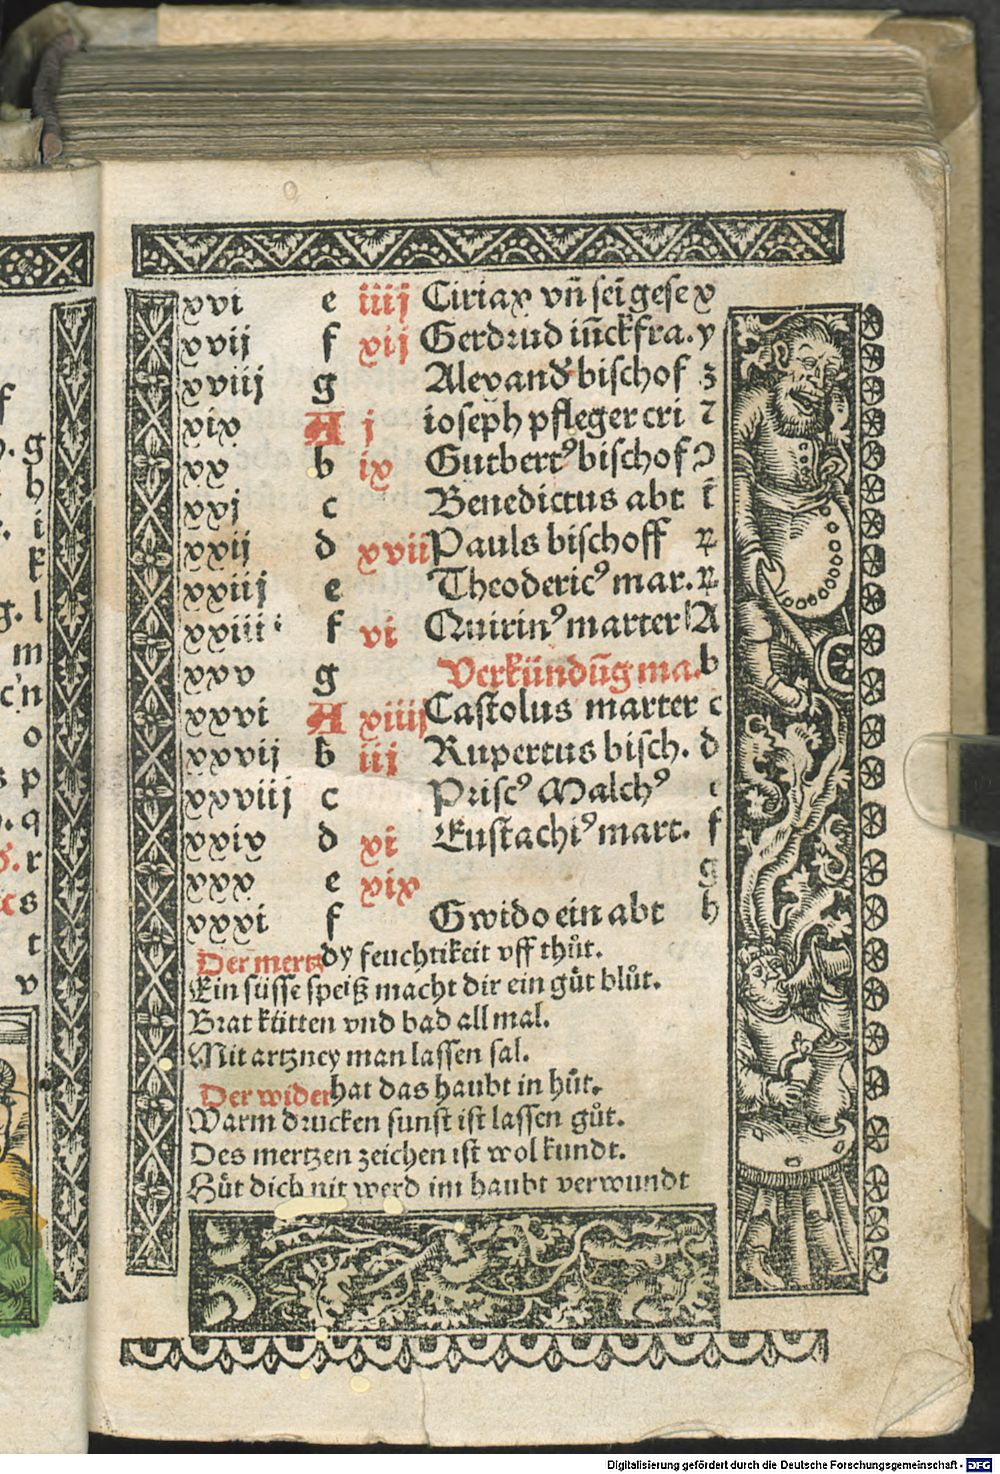 xvi e iiij Ciriax vn̄ sei̅ gese x
xvij f xij Gerdrud iūckfra. y
xviij g Alexand᷑ bischof z
xix A j ioseph pfleger cri ⁊
xx b ix Gutbertꝰ bischof ꝯ
xxj c Benedictus abt t̄
xxij d xvij Pauls bischoff ꝝ
xxiij e Theodericꝰ mar. ꝝ
xxiiii f vi Quirinꝰ marter A
xxv g Verkündūg ma. b
xxvi A xiiij Castolus marter c
xxvij b iij Rupertus bisch. d
xxviij c Priscꝰ Malchꝰ e
xxix d xi Eustachiꝰ mart. f
xxx e xix g
xxxi f Gwido ein abt h
Der mertz dy feuchtikeit vff thůt.
Ein süsse speiß macht dir ein gůt blůt.
Brat kütten vnd bad all mal.
Mit artzney man lassen sal.
Der wider hat das haubt in hůt.
Warm drucken sunst ist lassen gůt.
Des mertzen zeichen ist wol kundt.
Hüt dich nit werd im haubt verwundt
f
g
h
i
k
g. l
m
n
o
s p
q
r
s
t
v
Digitalisierung gefördert durch die Deutsche Forschungsgemeinschaft - DFG